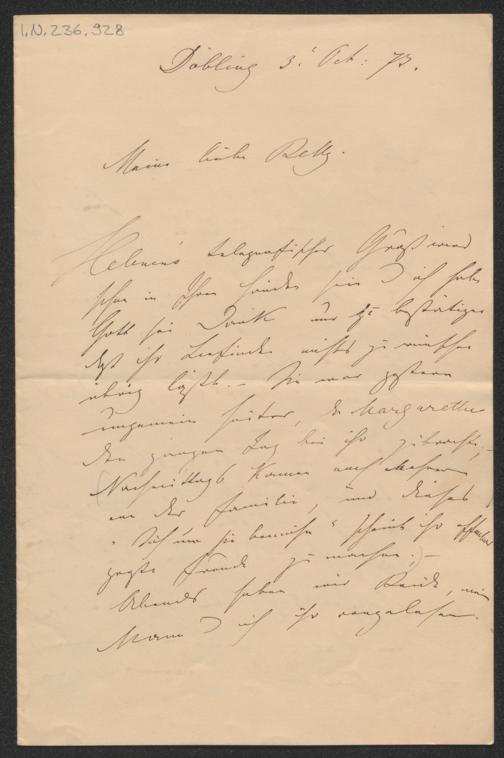 I.N. 236.928
Döbling 3t Oct: 73.
Meine liebe Betty.
Helenen's telegrafischer Gruß wird
schon in Ihren Händen sein & ich habe
Gott sei Dank nur zu bestätigen
daß ihr Befinden nichts zu wünschen
übrig läßt. – Sie war gestern
ungemein heiter, da Margarethe
den ganzen Tag bei ihr zubrachte, –
Nachmittags kamen noch Mehrere
von der Familie, und dieses
"Sich um sie bemühn" scheint ihr
große Freude zu machen; –
Abends haben wir Beide, mein
Mann & ich ihr vorgelesen.